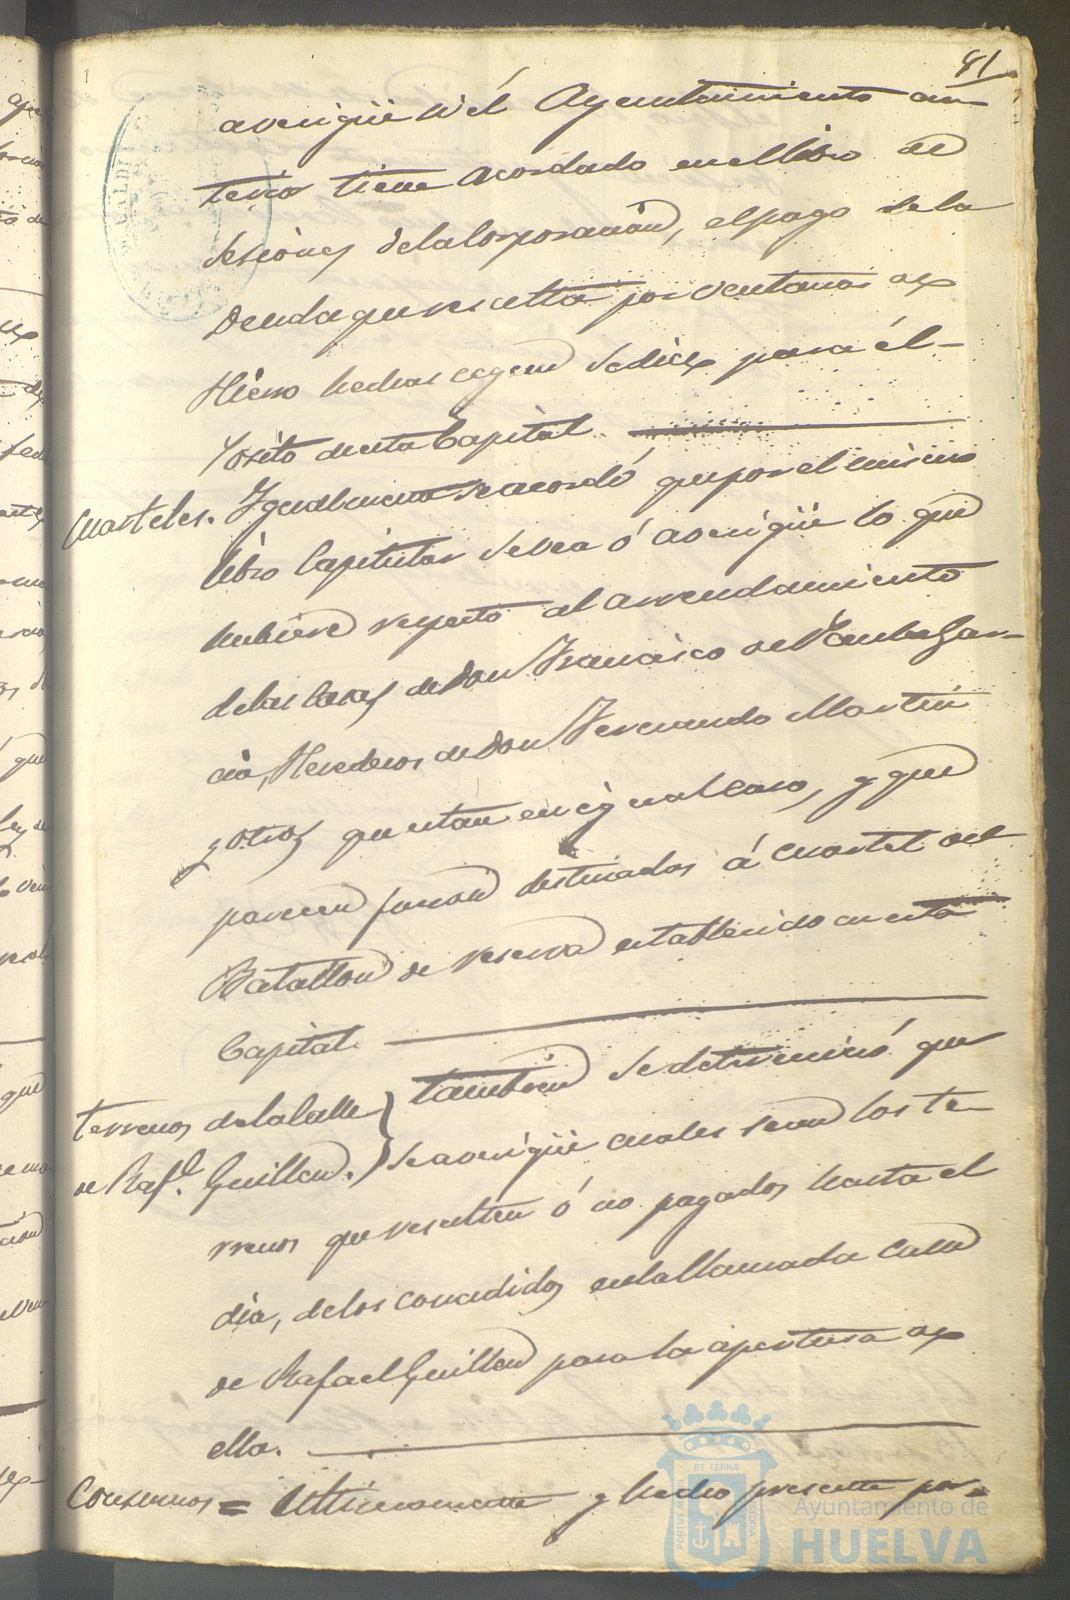 81
averigüe si él Ayuntamiento an-
terior tiene acordado en el libro de
Sesiones de la Corporación, el pago de la
Deuda que resulta por ventanas de
Hierro hechas segun se dice para él
Posito de esta Capital.
Cuarteles. Igualmente se acordó que por el mismo
libro Capitular se vea ó averigüe lo que
hubiere respecto al arrendamiento
de las Casas de Don Francisco de Paula Gar-
cia, Herederos de Don Fernando Martin
y otros que estan en igual caso, y que
parecen fueron destinados á cuartel del
Batallon de reserva establecido en esta
Capital.
Terrenos de la Calle
de Raf.l Guillen.
Tambien se determinó que
se averigüe cuales sean los te-
rrenos que resulten ó no pagados hasta el
dia, de los concedidos en la llamada Calle
de Rafael Guillen para la apertura de
ella.
Consumos = Ultimamente y hecho presente por
Ayuntamiento de
HUELVA